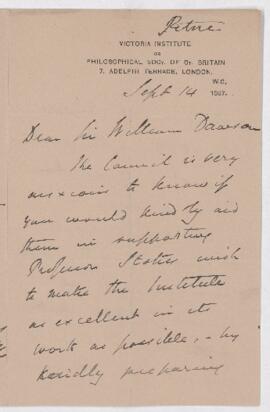 Petrie
VICTORIA INSTITUTE
OR
PHILOSOPHICAL SOCY. OF GT. BRITAIN
7, ADELPHI TERRACE, LONDON,
W.C,
Sept 14 1887.
Dear Sir William Dawson
The Council is very
anxious to know if
you would kindly aid
them in supporting
Professor Stokes wish
to make the Institute
as excellent in its
work as possible, - by
kindly preparing